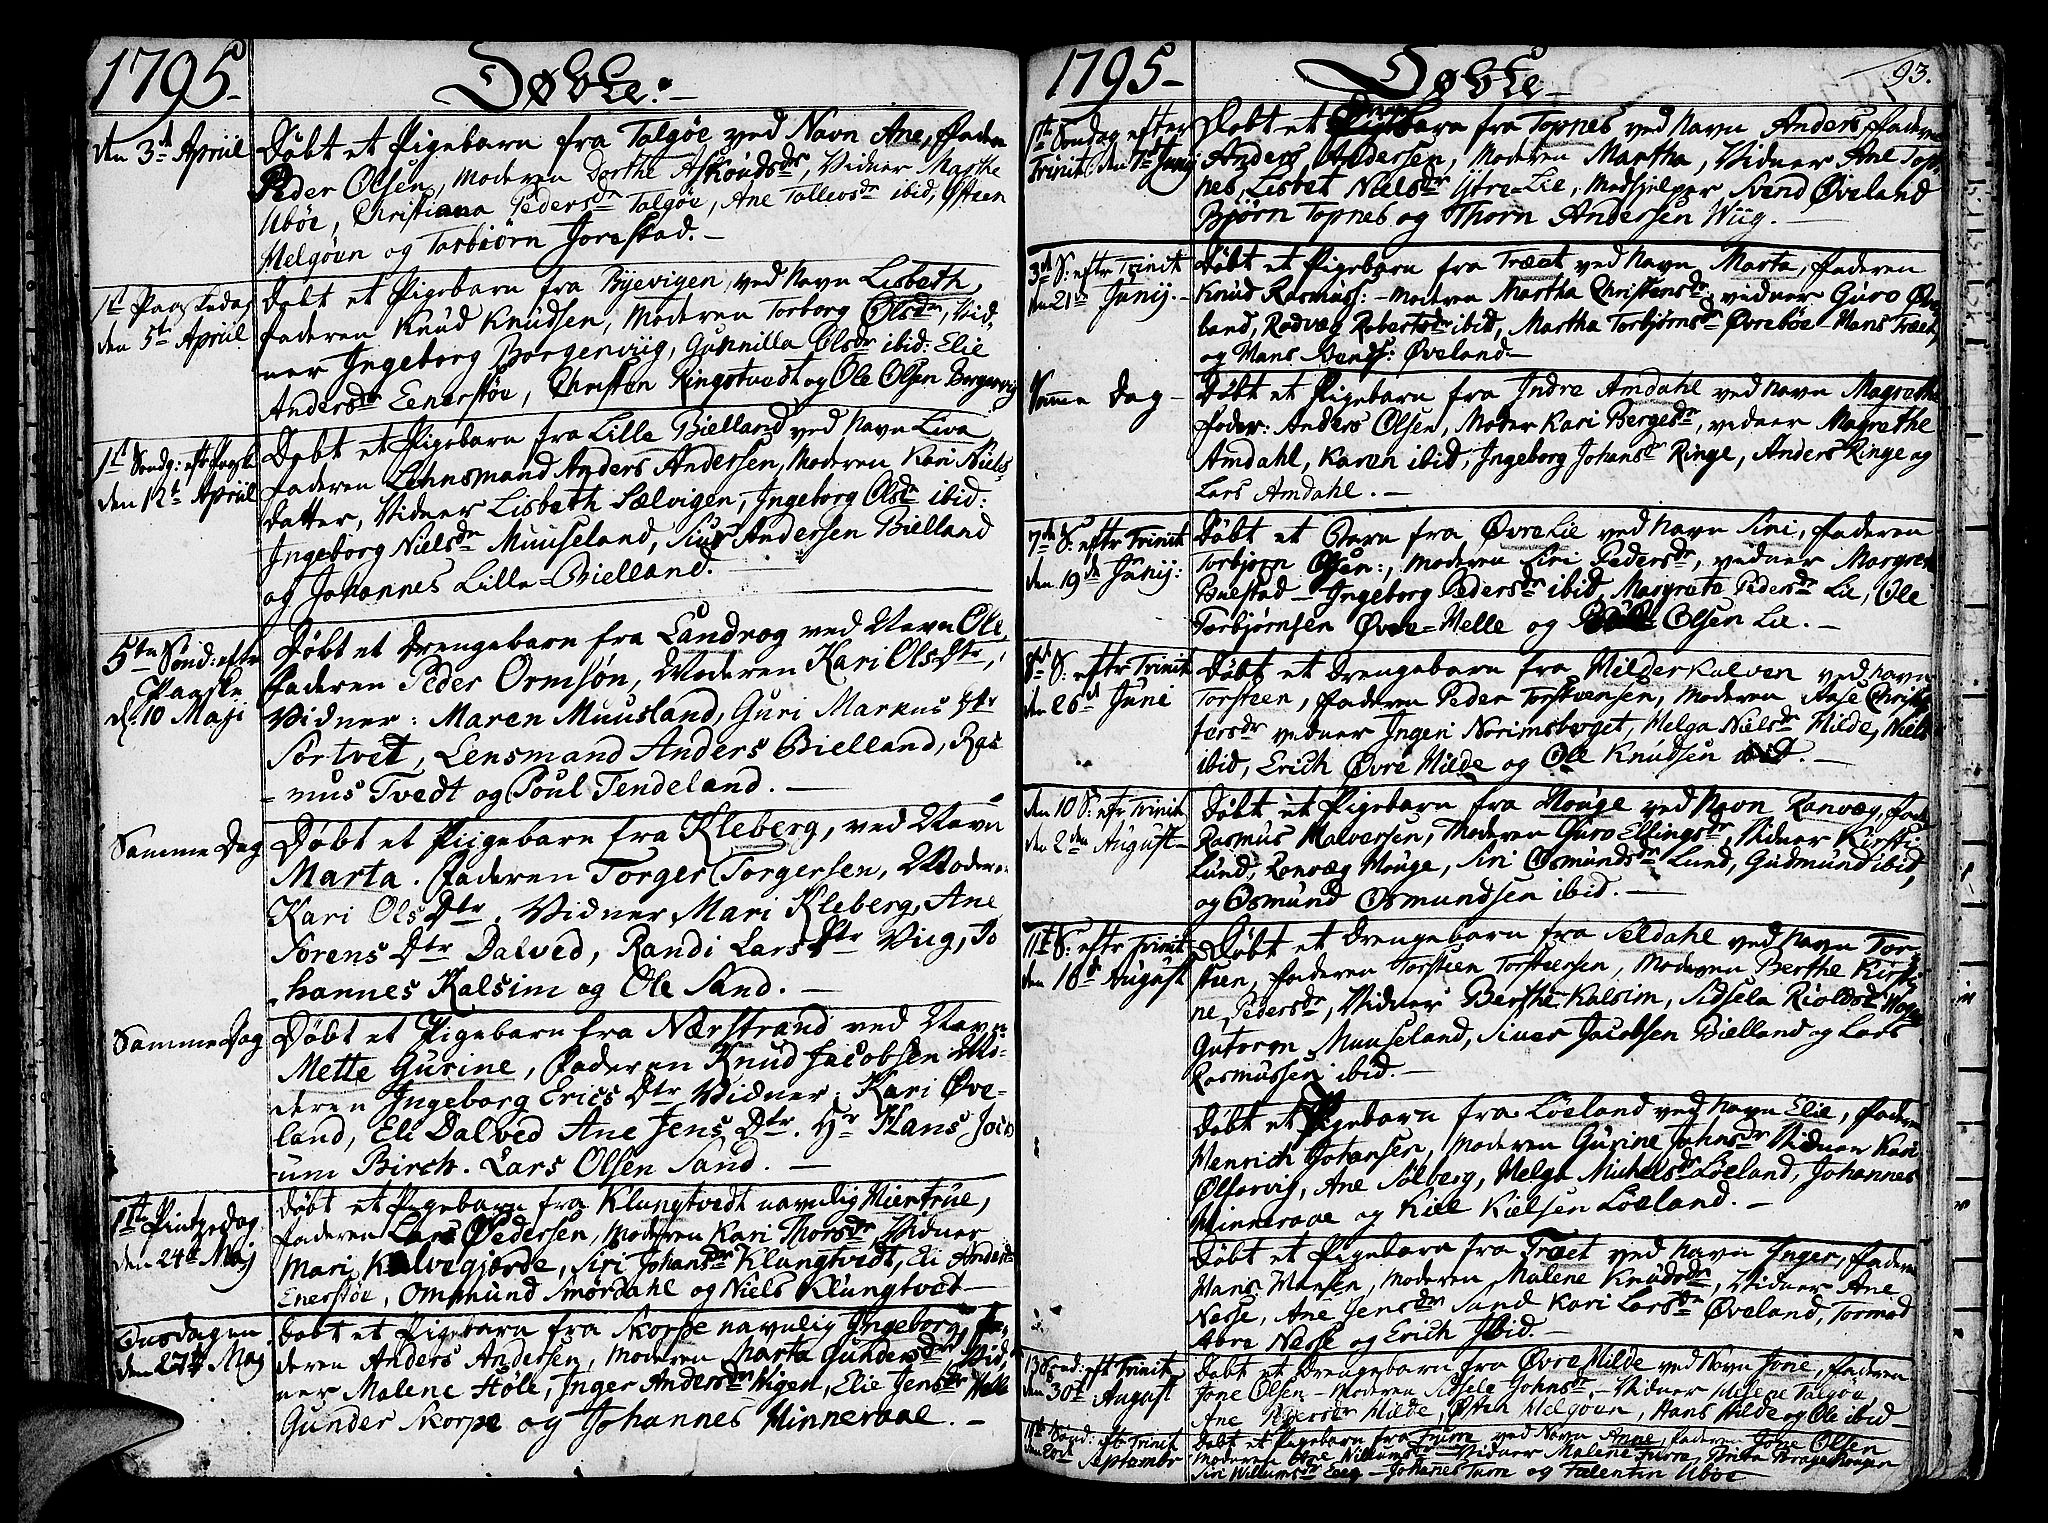 1795.
Døbte.
den 3d Apriil
Døbt et Pigebarn fra Talgøe ved Navn Ane, Faderen
Peder Olsen, Moderen Dorthe Askoudsdr, Vidner Marthe
Ubøe, Christiana Pedersdr Talgøe, Ane Tallevsdr ibid, Østeen
Helgøen og Torbiørn Jorestad.
1st Paaskedag
den 5te Apriil
Døbt et Pigebarn fra Byevigen, ved Navn Lisbeth,
Faderen Knud Knudsen, Moderen Torborg Olsdr, Vid-
ner Ingeborg Borgenviig, Gunnilla Olsdr ibid: Elie
Andersdr Eenerstøe, Christen Ringstvedt og Ole Olsen Borgenvig
1st Sondg: eft Paaske
den 12te Apriil
Døbt et Pigebarn fra Lille Bielland ved Navn Liva
Faderen Lehnsmand Anders Andersen, Moderen Kari Niels-
datter, Vidner Lisbeth Sælvigen, Ingeborg Olsdr ibid:
Ingeborg Nielsdr Muuseland, Siur Andersen Bielland
og Johannes Lille-Bielland.
5te Sond: efter
Paaske
d. 10 Maji
Døbt et Drengebarn fra Landrog ved Navn Ole,
Faderen Peder Ormsøn, Moderen Kari Olsdtr,
Vidner: Maren Muusland, Guri Markus Dtr
Sortvet, Lensmand Anders Bielland, Ras-
mus Tvedt og Poul Tendeland.
Samme Dag
Døbt et Piigebarn fra Kleberg, ved Navn
Marta. Faderen Torger Torgersen, Moderen
Kari Ols Dtr. Vidner Mari Kleberg, Ane
Sørens Dtr Dalved, Randi Lars Dtr Viig, Jo
hannes Kalsim og Ole Sand.
Samme Dag
Døbt et Pigebarn fra Nærstrand ved Navn
Mette Gurine, Faderen Knud Jacobsen Mo-
deren Ingeborg Erics Dtr Vidner: Kari Øve-
land, Eli Dalved Ane Jens Dtr. Hr Hans Joch
um Birch. Lars Olsen Sand.
1st Pintzedag
den 24de Maj
Døbt et Pigebarn fra Klungtvedt navnlig Miertrue,
Faderen Lars Pedersen, Moderen Kari Thorsdr, Vidner
Mari Kalvegjørde, Siri Johansdr Klungtvedt, Eli Andersdr
Enerstøe, Ommund Smørdahl og Niels Klungtvet
Onsdagen
den 27de Maj
Døbt et Pigebarn fra Skorpe navnlig Ingeborg, Fa-
deren Anders Andersen, Moderen Marta Gundersdr, Vid-
ner Malene Høle, Inger Andersdr Vigen, Elie Jensdr Helle
Gunder Skorpe og Johannes Hinneraae.
1795
Døbte
93.
1te Søndag efter
Trinit. den 7de Junij
Døbt et Drengebarn fra Topnes ved Navn Anders, Faderen
Anders Andersen, Moderen Martha, Vidner Ane Top-
nes, Lisbet Nielsdr Ytre-Lie, Medhjelper Svend Øveland
Bjørn Topnes og Thorn Andersen Wiig.
3d S: eftr Trinit
den 21de Junij.
Døbt et Pigebarn fra Træet ved Navn Marta, Faderen
Knud Rasmuss: Moderen Martha Christensdr vidner Guro Øve
land, Rodvæg Robertsdr ibid, Martha Torbjørnsdr Øvrebøe Hans Træet,
og Hans Svends: Øveland
Samme Dag
Døbt et Pigebarn fra Indre Amdahl ved Navn Magrethe
Fader: Anders Olsen, Moder Kari Bergesdr, vidner Magrethe
Amdahl, Karen ibid, Ingeborg Johansdr Ringe, Anders Ringe og
Lars Amdahl.
7de S: eftr Trinit
den 19de Junij:
Døbt et Barn fra Øvre Lie ved Navn Siri, Faderen
Torbjørn Olsen:, Moderen Siri Pedersdr, vidner Margret
Buestad Ingeborg Pedersdr ibid, Margrete Pedersdr Lie, Ole
Torbjørnsen Øvre-Helle og Olsen Lie.
8de S. eftr Trinit
den 26d Juni
Døbt et Drengebarn fra Hilderkalven ved Navn
Torsteen, Faderen Peder Torstensen, Moderen Aase Christo-
fersdr vidner Ingeri Norimsberget, Helga Nielsdr Hilde, Niels
ibid, Erich Øvre Hilde og Ole Knudsen ibid.
den 10 S: eftr Trinit
den 2den August
Døbt et Pigebarn fra Houge ved Navn Ranvæg, Fader
Rasmus Halversen, Moderen Guro Ellingsdr, Vidner Kirsti
Lund, Ronvæg Houge, Siri Osmundsdr Lund, Gudmund ibid,
og Osmund Osmundsen ibid.
11te S: eftr Trinit
den 16de August
Døbt et Drengebarn fra Seldahl ved Navn Tor-
stein, Faderen Torsteen Torsteensen, Moderen Berthe Kirsti-
ne Pedersdr, Vidner Berthe Kalsim, Sidsela Rioldsdr
Gutorm Muuseland, Siver Jacobsen Bielland og Lars
Rasmussen ibid.
Døbt et Pigebarn fra Løeland ved Navn Elie, Fader
Henrich Johansen, Moderen Gurine Johnsdr Vidner Kari
Ølfarvig, Ane Solberg, Helga Michelsdr Løeland, Johannes
Hinneraae og Kiel Kielsen Løeland.
Døbt et Pigebarn fra Træet ved Navn Inger, Faderen
Hans Hansen, Moderen Malene Knudsdr, Vidner Ane
Nesse, Ane Jensdr Sand Kari Larsdr Øveland, Tormod
Nesse og Erich Ibid.
13 Sond: eft Trinit
den 30te August
Døbt et Drengebarn fra Øvre Hilde ved Navn Jone, Faderen
Jone Olsen Moderen Sidsele Johnsdr Vidner Helene Talgøe
Ane Pedersdr Hilde, Østen Helgøen, Hans Hilde og Ole ibid
Sond: eft Trinit
Septembr
Døbt et Pigebarn fra Furre ved Navn Anne, Faderen Jone Olsen
Moderen Willumsdr Vidner Malene Furre,
Siri Willumsdr Johannes og Falentin Uboe